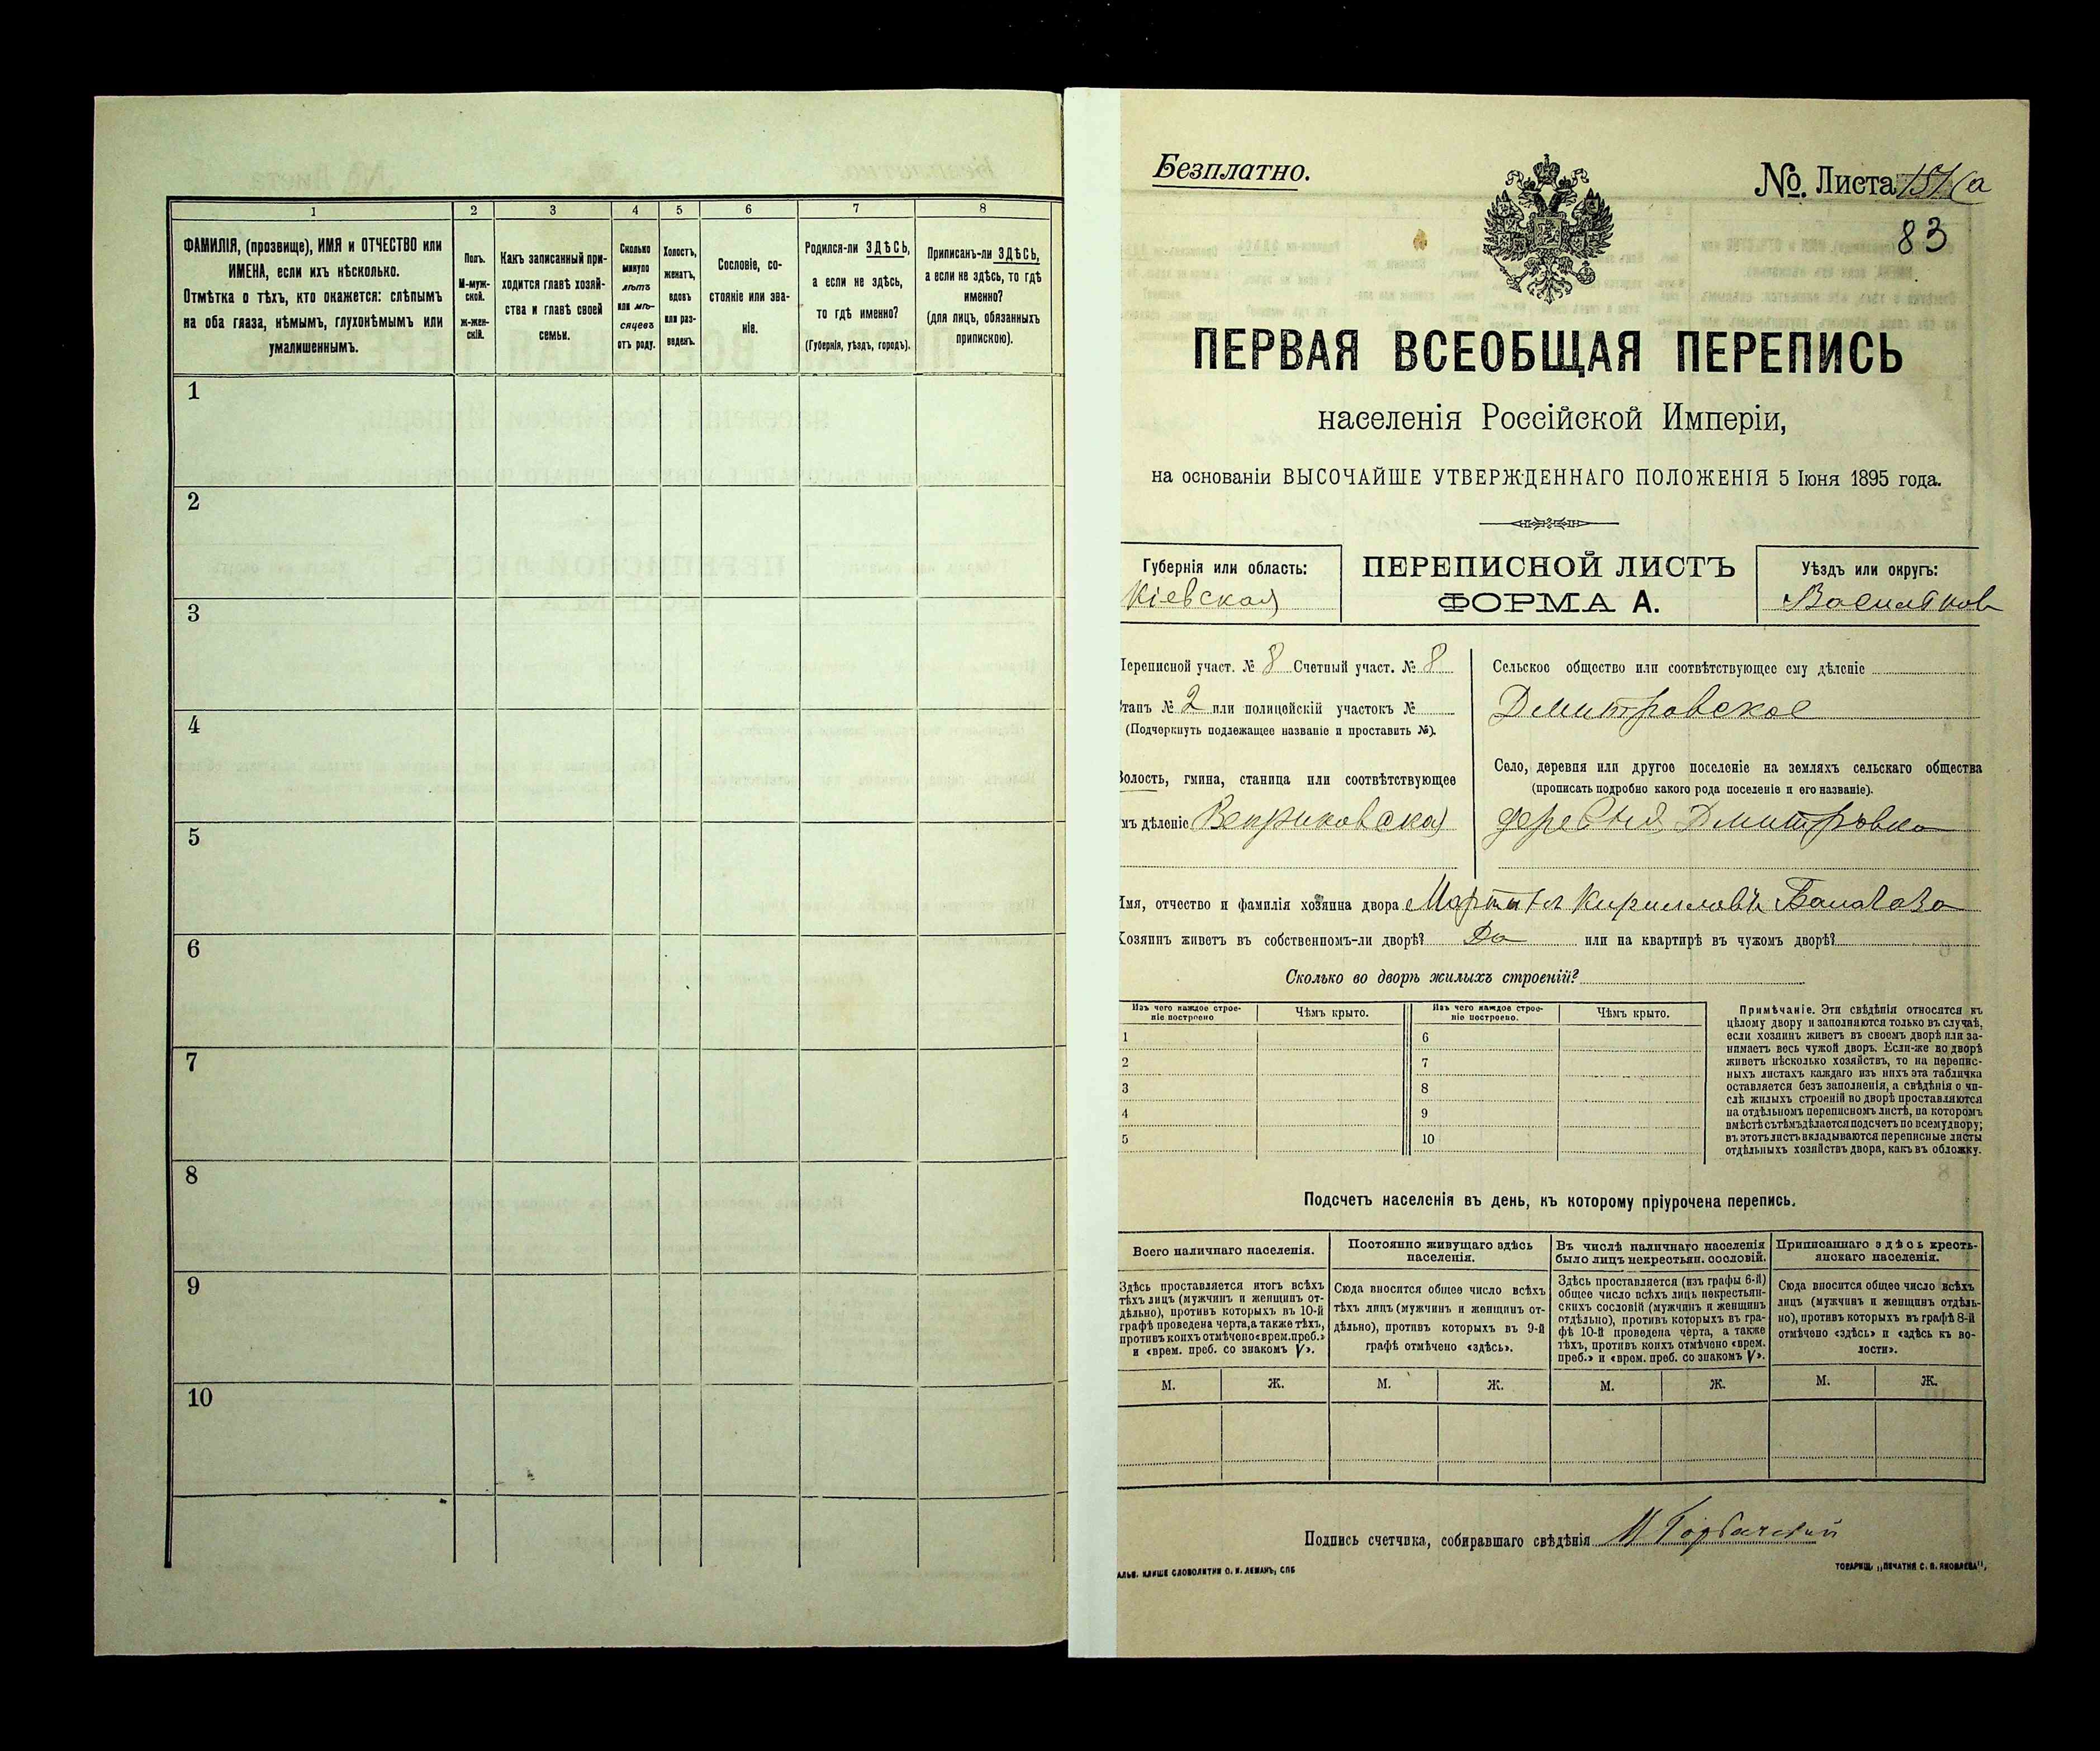 1 2 3 4 5 6 7 8
ФАМИЛІЯ, (прозвище), ИМЯ и ОТЧЕСТВО или
ИМЕНА, если ихъ нѣсколько.
Отмѣтка о тѣхъ, кто окажется: слѣпымъ
на оба глаза, нѣмымъ, глухонѣмымъ или
умалишеннымъ.
Полъ.
М-муж-
ской.
ж-жен-
скій.
Какъ записанный при-
ходится главѣ хозяй-
ства и главѣ своей
семьи.
Сколько
минуло
лѣтъ
или мѣ-
сяцевъ
отъ роду.
Холостъ,
женатъ,
вдовъ
или раз-
веденъ.
Сословіе, со-
стояніе или зва-
ніе.
Родился-ли ЗДѢСЬ,
а если не здѣсь,
то гдѣ именно?
(Губернія, уѣздъ, городъ).
Приписанъ-ли ЗДѢСЬ,
а если не здѣсь, то гдѣ
именно?
(для лицъ, обязанныхъ
припискою).
1
2
3
4
5
6
7
8
9
10
Безплатно.
№. Листа 151(а
83
ПЕРВАЯ ВСЕОБЩАЯ ПЕРЕПИСЬ
населенія Россійской Имперіи,
на основаніи ВЫСОЧАЙШЕ УТВЕРЖДЕННАГО ПОЛОЖЕНІЯ 5 Іюня 1895 года.
Губернія или область:
Кіевская
ПЕРЕПИСНОЙ ЛИСТЪ
ФОРМА А.
Уѣздъ или округъ:
Васильков
Переписной участ. № 8 Счетный участ. № 8
Станъ № 2 или полицейскій участокъ №
(Подчеркнуть подлежащее названіе и проставить №).
Волость, гмина, станица или соотвѣтствующее
имъ дѣленіе Веприковская
Сельское общество или соотвѣтствующее ему дѣленіе
Дмитровское
Село, деревня или другое поселеніе на земляхъ сельскаго общества
(прописать подробно какого рода поселеніе и его названіе).
деревня Дмитровка
Имя, отчество и фамилія хозяина двора Мартын Кирилловъ
Хозяинъ живетъ въ собственномъ-ли дворѣ? Да или на квартирѣ въ чужомъ дворѣ?
Сколько во дворѣ жилыхъ строеній?
Изъ чего каждое строе-
ніе построено
Чѣмъ крыто.
Изъ чего каждое строе-
ніе построено.
Чѣмъ крыто.
1 6
2 7
3 8
4 9
5 10
Примѣчаніе. Эти свѣдѣнія относятся къ
цѣлому двору и заполняются только въ случаѣ,
если хозяинъ живетъ въ своемъ дворѣ или за-
нимаетъ весь чужой дворъ. Если-же во дворѣ
живетъ нѣсколько хозяйствъ, то на перепис-
ныхъ листахъ каждаго изъ нихъ эта табличка
оставляется безъ заполненія, а свѣдѣнія о чи-
слѣ жилыхъ строеній во дворѣ проставляются
на отдѣльномъ переписномъ листѣ, на которомъ
вмѣстѣ съ тѣмъ дѣлается подсчетъ по всему двору;
въ этотъ листъ вкладываются переписные листы
отдѣльныхъ хозяйствъ двора, какъ въ обложку.
Подсчетъ населенія въ день, къ которому пріурочена перепись.
Всего наличнаго населенія.
Здѣсь проставляется итогъ всѣхъ
тѣхъ лицъ (мужчинъ и женщинъ от-
дѣльно), противъ которыхъ въ 10-й
графѣ проведена черта, а также тѣхъ,
противъ коихъ отмѣчено «врем. преб.»
и «врем. преб. со знакомъ V».
Постоянно живущаго здѣсь
населенія.
Сюда вносится общее число всѣхъ
тѣхъ лицъ (мужчинъ и женщинъ от-
дѣльно), противъ которыхъ въ 9-й
графѣ отмѣчено «здѣсь».
Въ числѣ наличнаго населенія
было лицъ некрестьян. сословій.
Здѣсь проставляется (изъ графы 6-й)
общее число всѣхъ лицъ некрестьян-
скихъ сословій (мужчинъ и женщинъ
отдѣльно), противъ которыхъ въ гра-
фѣ 10-й проведена черта, а также
тѣхъ, противъ коихъ отмѣчено «врем.
преб.» и «врем. преб. со знакомъ V».
Приписаннаго здѣсь кресть-
янскаго населенія.
Сюда вносится общее число всѣхъ
лицъ (мужчинъ и женщинъ отдѣль-
но), противъ которыхъ въ графѣ 8-й
отмѣчено «здѣсь» и «здѣсь къ во-
лости».
М. Ж. М. Ж. М. Ж. М. Ж.
Подпись счетчика, собиравшаго свѣдѣнія
АЛЬВ. КЛИШЕ СЛОВОЛИТНИ О. И. ЛЕМАНЪ, СПБ
ТОВАРИЩ. „ПЕЧАТНЯ С. П. ЯКОВЛЕВА",